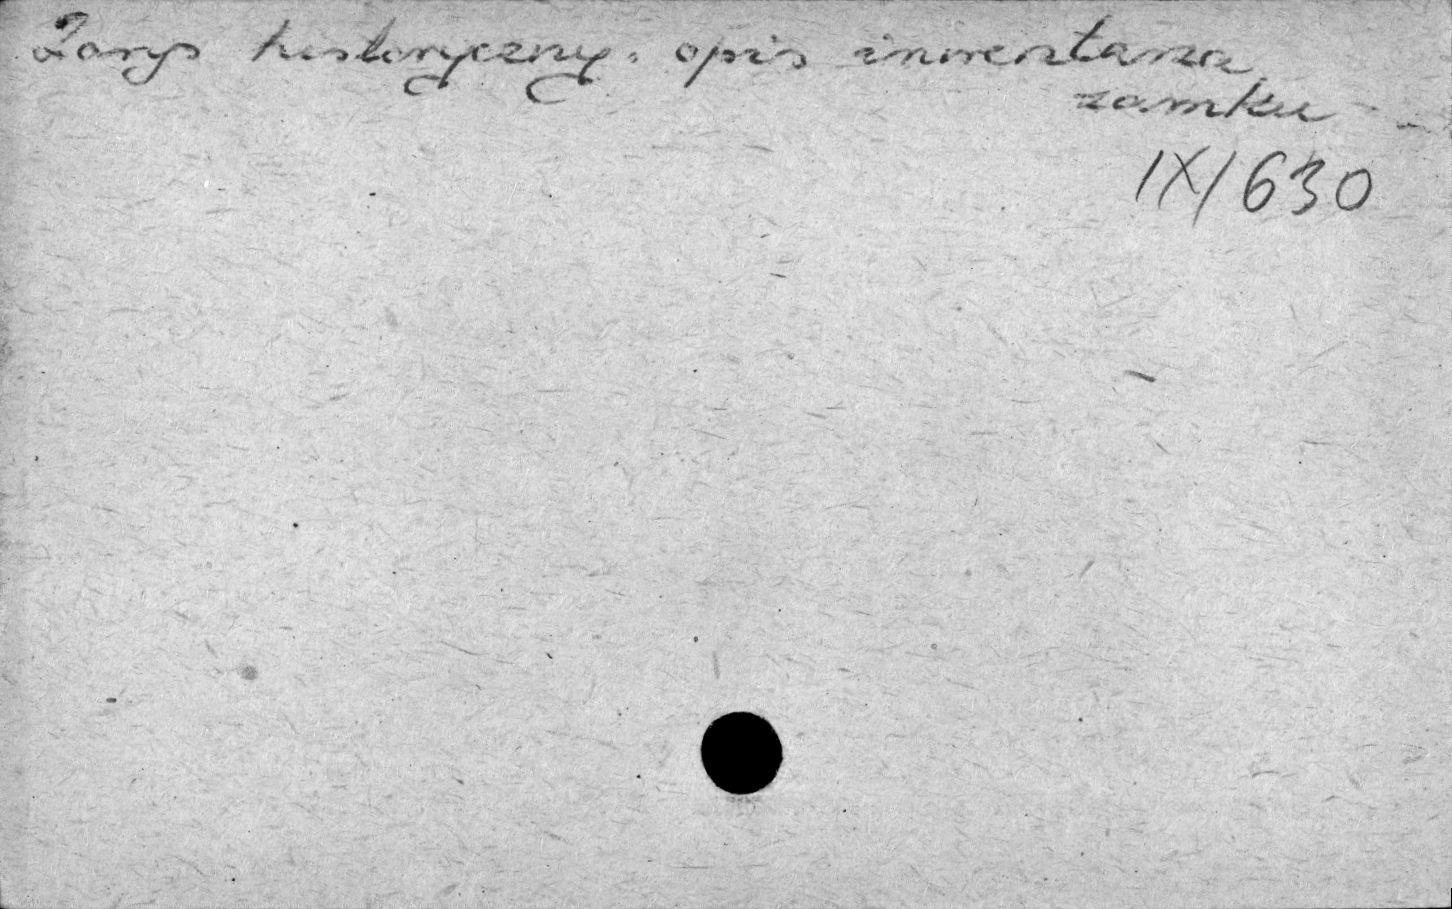 Zarys historyczny. opis inwentarza
zamku
IX/630